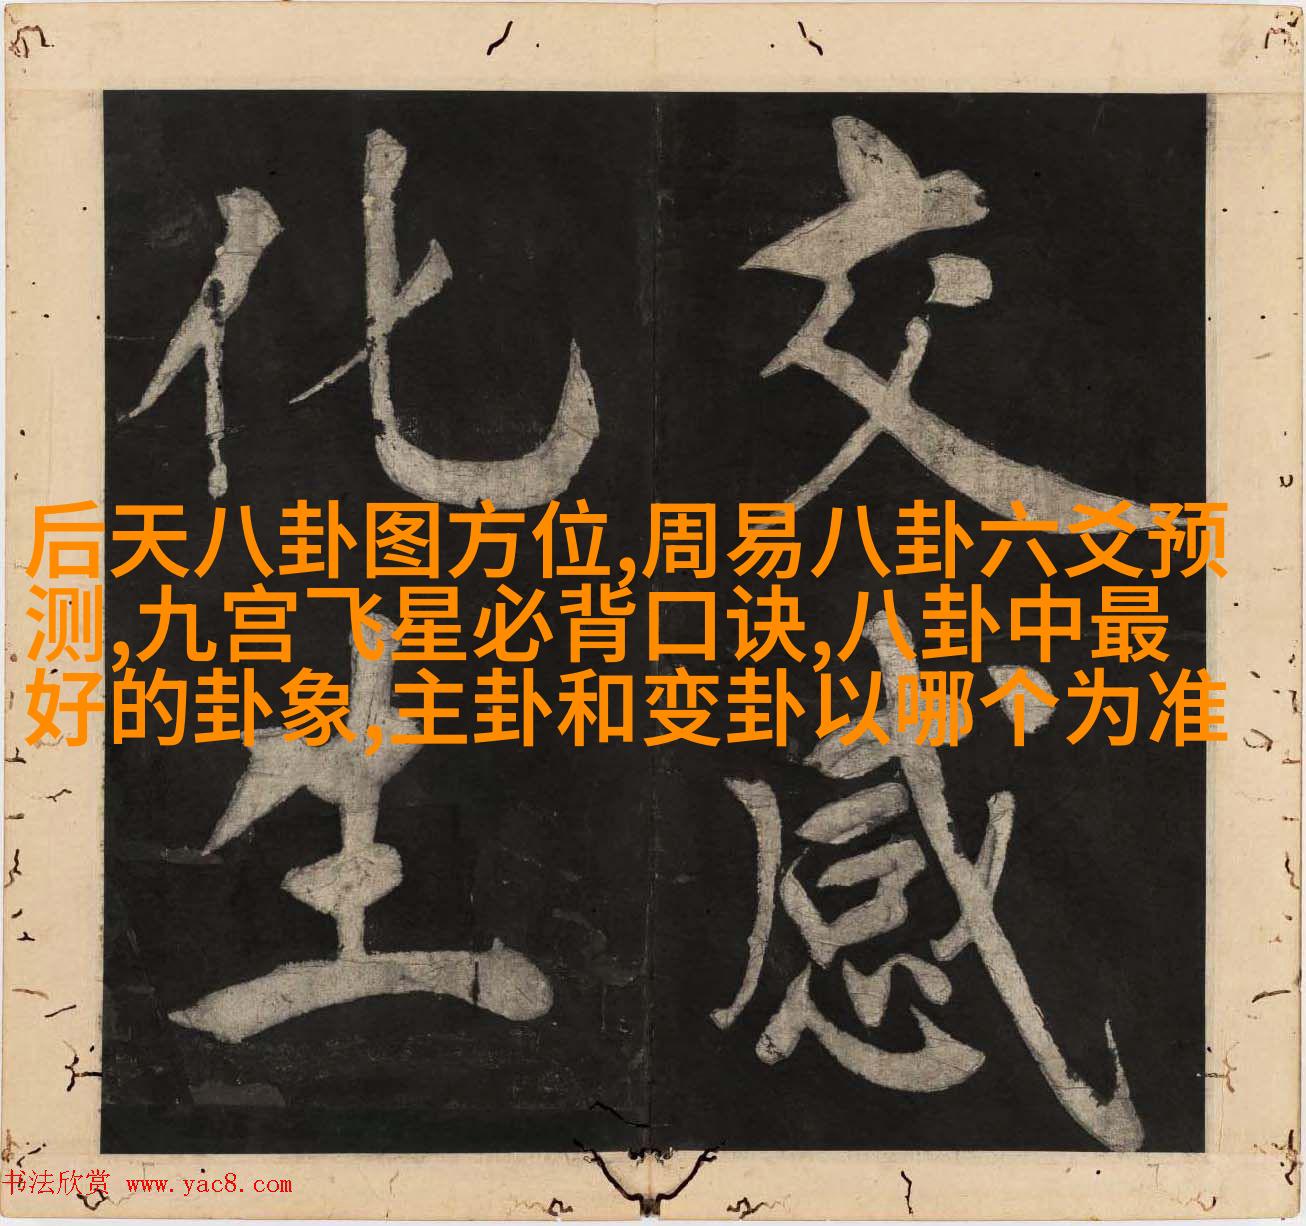 交感
化生
后天八卦图方位,周易八卦六爻预
测,九宫飞星必背口诀,八卦中最
好的卦象,主卦和变卦以哪个为准
书法欣赏 www.yac8.com